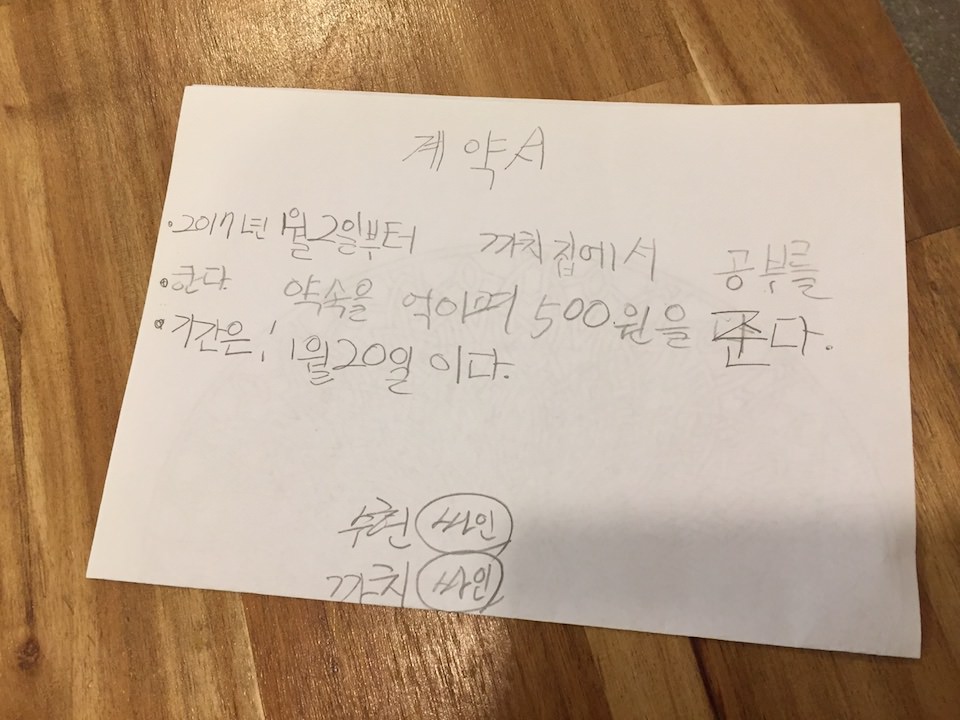 계약서
·2017년 1월2일부터 까치집에서 공부를
·한다. 약속을 억이며 500원을 준다.
·기간은, 1월20일 이다.
수현 싸인
까치 싸인